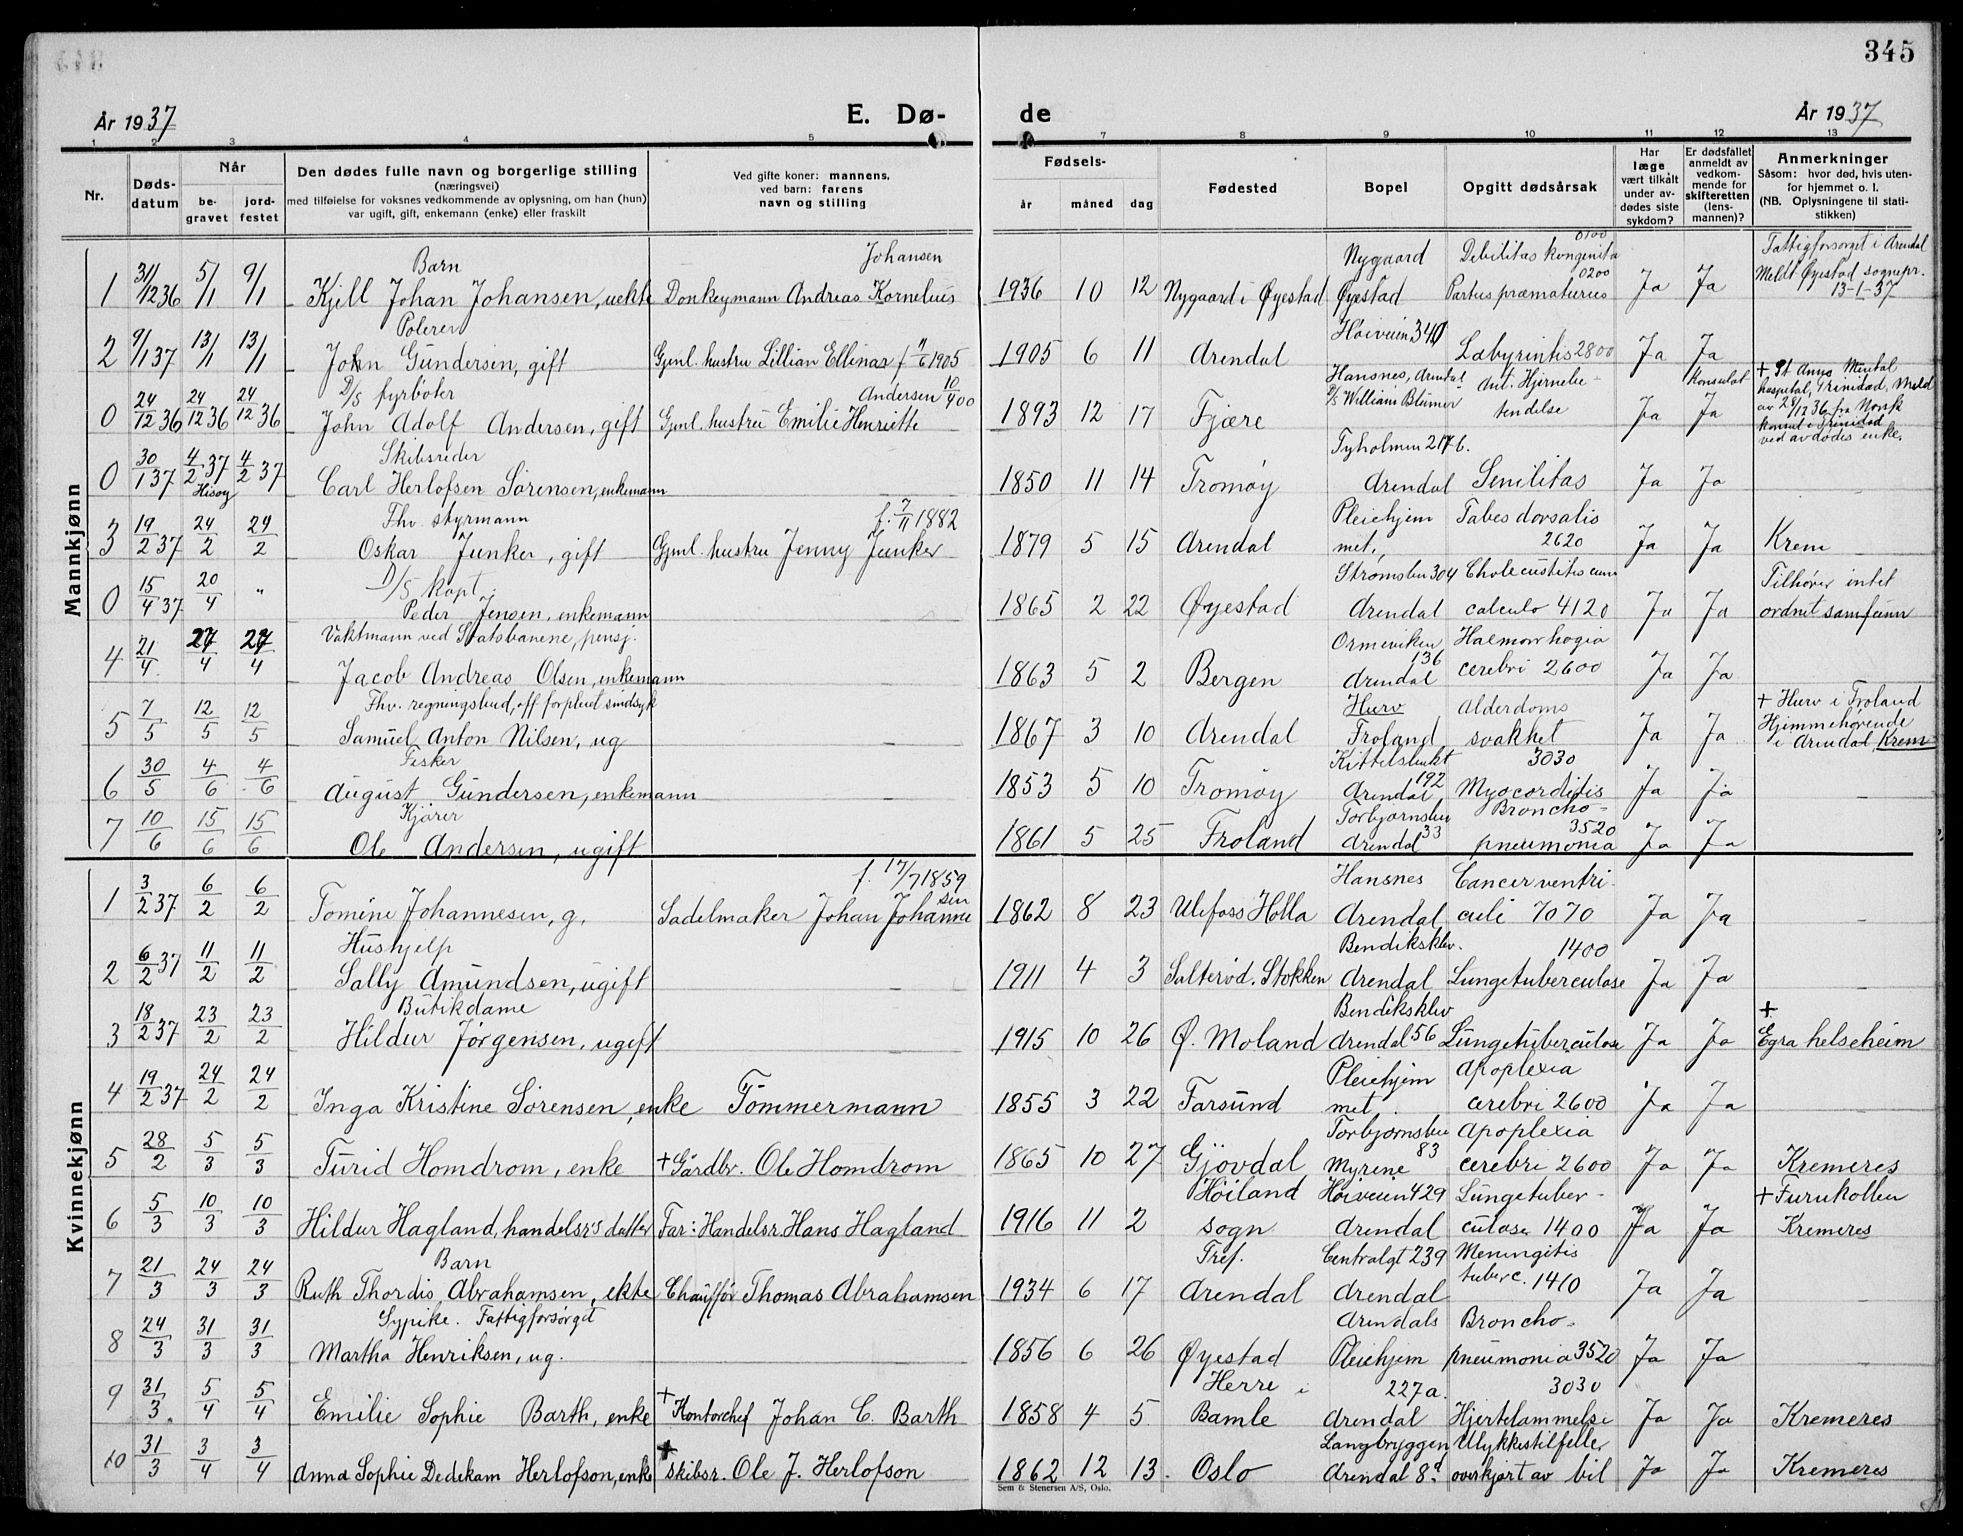 345
År 1937 E. Dø- de År 1937
1 2 3 4 5 7 8 9 10 11 12 13
Nr. Døds-datum Når be-gravet jord-festet Den dødes fulle navn og borgerlige stilling (næringsvei) med tilføielse for voksnes vedkommende av oplysning, om han (hun) var ugift, gift, enkemann (enke) eller fraskilt Ved gifte koner: mannens, ved barn: farens navn og stilling Fødsels- år måned dag Fødested Bopel Opgitt dødsårsak Har læge vært tilkalt under av-dødes siste sykdom? Er dødsfallet anmeldt av vedkom-mende for skifteretten (lens-mannen)? Anmerkninger Såsom: hvor død, hvis uten-for hjemmet o. l. (NB. Oplysningene til stati-stikken)
Mannkjønn
1 31/12 36 5/1 9/1 Barn Kjell Johan Johansen, uekte Donkeymann Andreas Kornelius Johansen 1936 10 12 Nygaard i Øyestad Nygaard Øyestad Debilitas kongenita 0100 Partus præmaturus 0200 Ja Ja Fattigforsorget i Arendal Meldt Øyestad sognepr. 13-1-37
2 9/1 37 13/1 13/1 Polerer John Gundersen, gift Gjml. hustru Lillian Ellinar f 9/6 1905 1905 6 11 Arendal Høiveien 340 Labyrintis 2800 Ja Ja
0 24/12 36 24/12 36 24/12 36 D/S fyrbøter John Adolf Andersen, gift Gjml. hustru Emilie Henriette Andersen 10/4 00 1893 12 17 Fjære Hansnes, Arendal D/S William Blumer Ant. Hjernebe-tendelse Ja Konsulat Ja + St Anns Mental hospital, Trinidad, Meld av 28/12 36 fra Norsk konsul i Trinidad ved avdødes enke.
0 30/1 37 4/2 37 Hisøy 4/2 37 Skibsreder Carl Herlofsen Sørensen, enkemann 1850 11 14 Tromøy Tyholmen 217 b. Arendal Senilitas Ja Ja
3 19/2 37 24/2 24/2 Fhv. styrmann Oskar Junker, gift Gjml. hustru Jenny Junker f. 7/11 1882 1879 5 15 Arendal Pleiehjemmet, Tabes dorsalis 2620 Ja Ja Krem
0 15/4 37 20/4 " D/S kapt. Peder Jensen, enkemann 1865 2 22 Øyestad Strømsbu 304 Arendal Cholecustitis cum calculo 4120 Ja Ja Tilhører intet ordnet samfunn
4 21/4 27/4 27/4 Vaktmann ved Statsbanene, pensj. Jacob Andreas Olsen, enkemann 1863 5 2 Bergen Ormeviken 136 Arendal Haemorrhagia cerebri 2600 Ja Ja
5 7/5 12/5 12/5 Fhv. regningsbud, off forpleiet sindsyk Samuel Anton Nilsen, ug 1867 3 10 Arendal Hurv Froland Alderdoms svakhet Ja Ja + Hurv i Froland Hjemmehørende i Arendal, Krem
6 30/5 4/6 4/6 Fisker August Gundersen, enkemann 1853 5 10 Tromøy Kittelsbukt 192 Arendal 3030 Myocorditis Ja Ja
7 10/6 15/6 15/6 Kjører Ole Andersen, ugift 1861 5 25 Froland Torbjørnsbu 33 Arendal Broncho-pneumonia 3520 Ja Ja
Kvinnekjønn
1 3/2 37 6/2 6/2 Tomine Johannesen, g, Sadelmaker Johan Johannesen f. 17/7 1859 1862 8 23 Ulefoss Holla Hansnes Arendal Cancer ventriculi 7070 Ja Ja
2 6/2 37 11/2 11/2 Hushjelp Sally Amundsen, ugift 1911 4 3 Salterød. Stokken Bendiksklev. Arendal 1400 Lungetuberculose Ja Ja
3 18/2 37 23/2 23/2 Butikdame Hildur Jørgensen, ugift 1915 10 26 Ø. Moland Bendiksklev Arendal 56 Lungetuberculose Ja Ja + Egra helseheim
4 19/2 37 24/2 24/2 Inga Kristine Sørensen, enke Tømmermann 1855 3 22 Farsund Pleiehjemmet. Apoplexia cerebri 2600 Ja Ja
5 28/2 5/3 5/3 Turid Homdrom, enke + Gårdbr. Ole Homdrom 1865 10 27 Gjøvdal Torbjørnsbu 83 Myrene Apoplexia cerebri 2600 Ja Ja Kremeres
6 5/3 10/3 10/3 Hildur Hagland, handelsr's datter Far: Handelsr. Hans Hagland 1916 11 2 Høiland sogn Høiveien 429 Arendal Lungetuber-culose 1400 Ja Ja + Furukollen Kremeres
7 21/3 24/3 24/3 Barn Ruth Thordis Abrahamsen, ekte Chauffør Thomas Abrahamsen 1934 6 17 Tref. Arendal Centralgt 239 Arendal Meningitis tuberc. 1410 Ja Ja
8 24/3 31/3 31/3 Sypike. Fattigforsørget Martha Henriksen, ug. 1856 6 26 Øyestad Arendals Pleiehjem Broncho-pneumonia 3520 Ja Ja
9 31/3 5/4 5/4 Emilie Sophie Barth, enke + Kontorchef Johan C. Barth 1858 4 5 Herre i Bamle 227a. Arendal 3030 Hjertelammelse Ja Ja Kremeres
10 31/3 3/4 3/4 Anna Sophie Dedekam Herlofson, enke + skibsr. Ole J. Herlofson 1862 12 13. Oslo Langbryggen Arendal 8d Ulykkestilfelle, overkjørt av bil Ja Ja Kremeres
Sem & Stenersen A/S, Oslo.